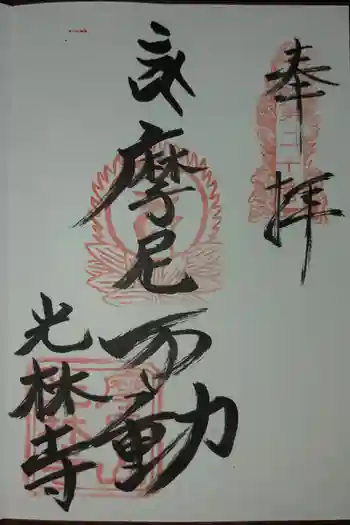 奉拝
摩尼不動
光林寺